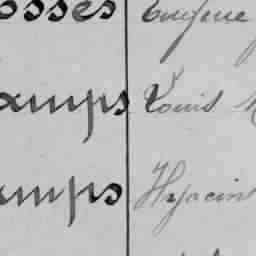 osses Eugene
amps Louis
amps Hyacin